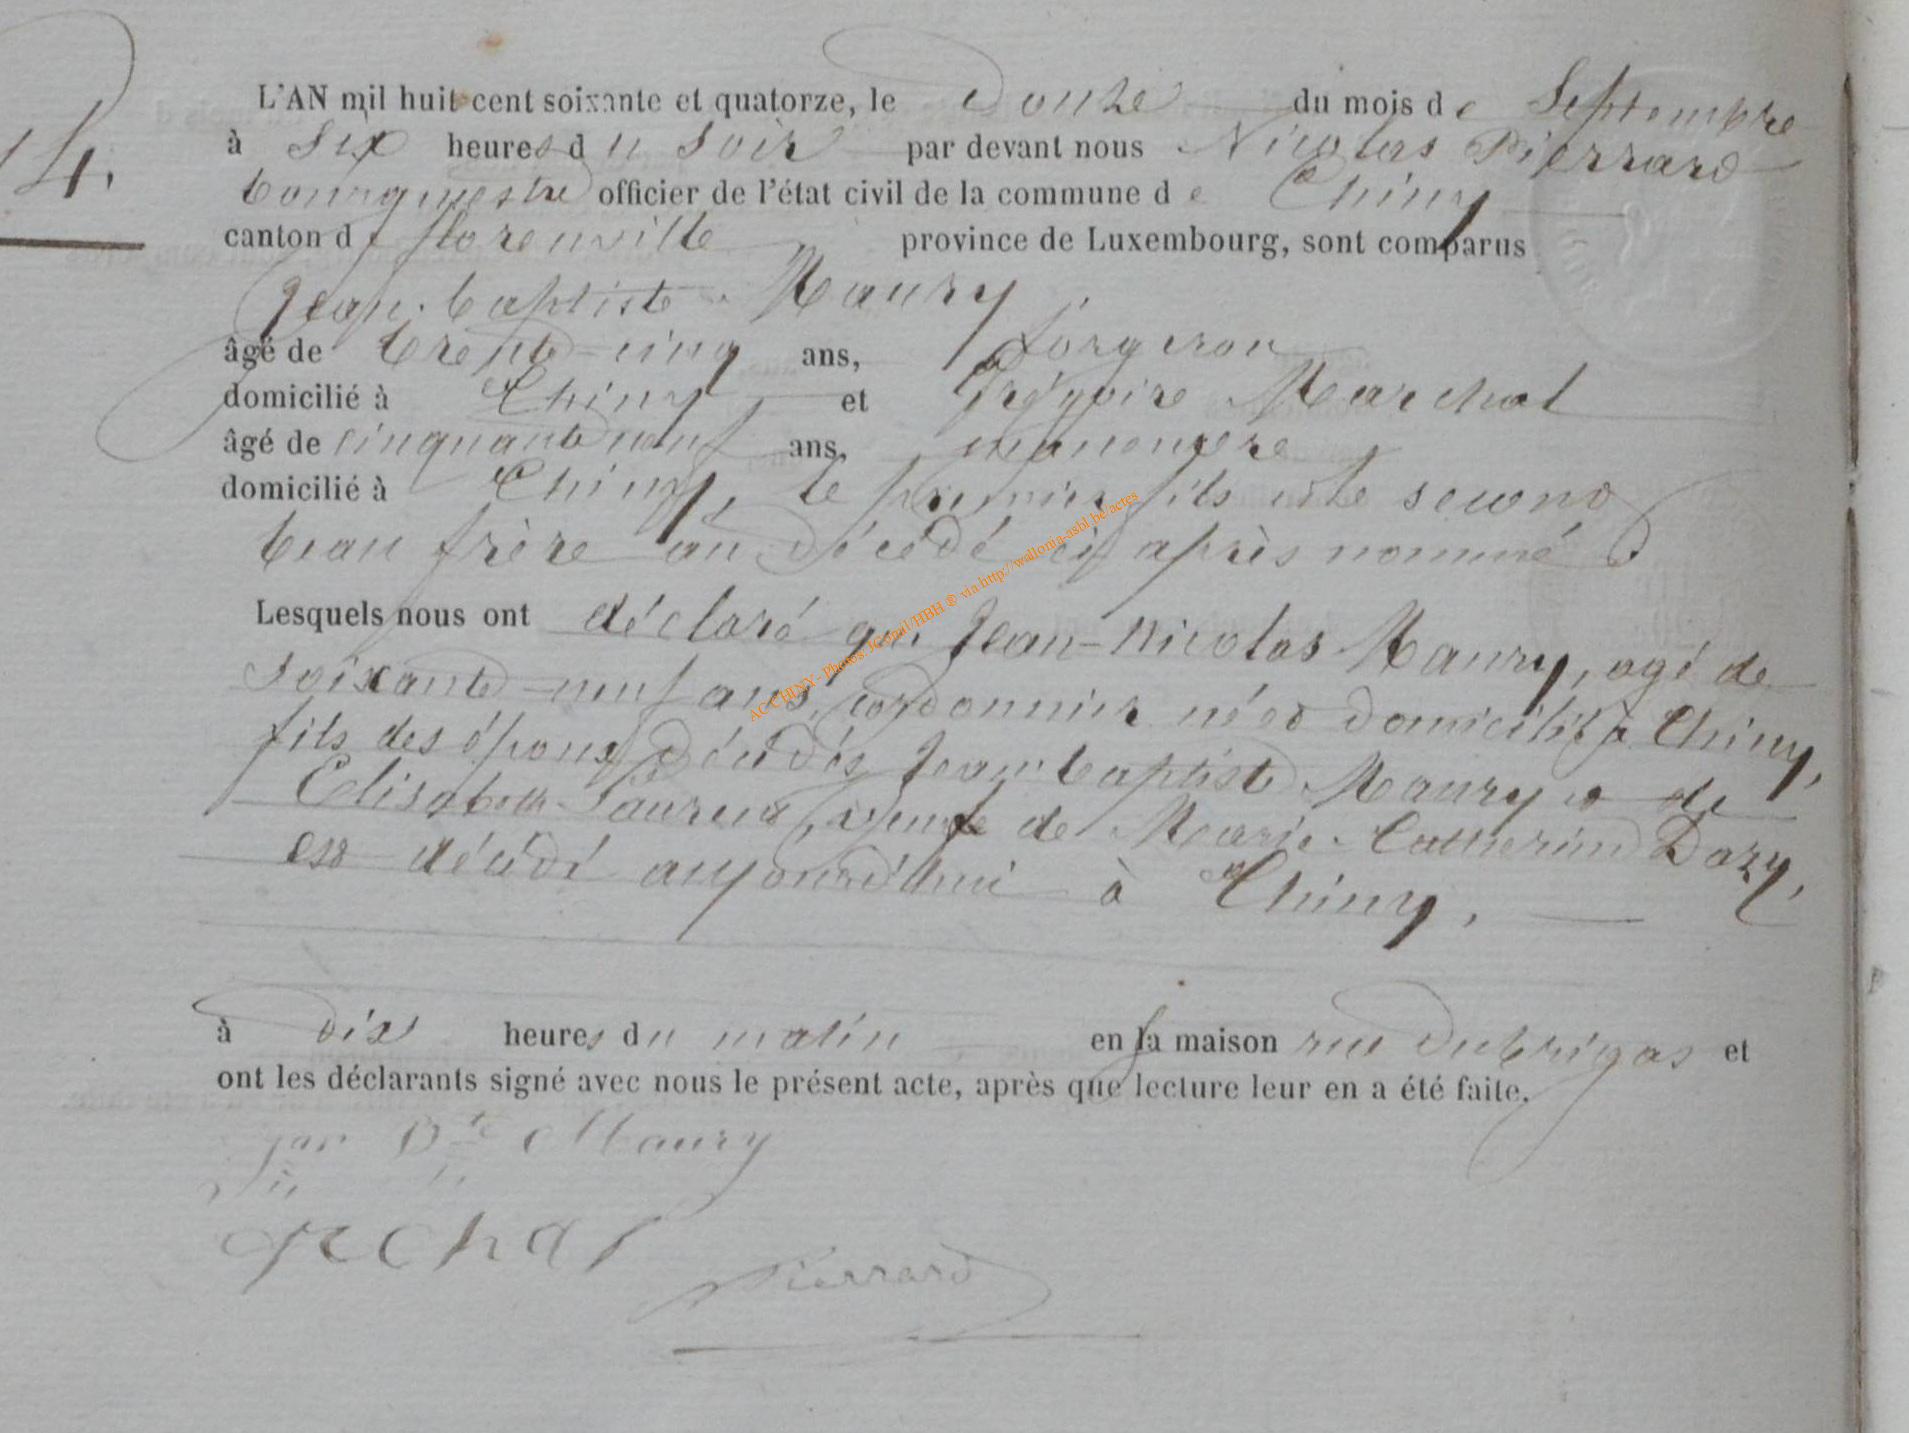 14.
L'AN mil huit cent soixante et quatorze, le Douze du mois de Septembre
à six heures du soir par devant nous Nicolas Pierrard
bourgmestre officier de l'état civil de la commune de Chiny
canton de florenville province de Luxembourg, sont comparus
Jean-baptiste Maury
âgé de trente-cinq ans, forgeron
domicilié à Chiny et Grégoire Marchal
âgé de cinquante neuf ans, manoeuvre
domicilié à Chiny, le premier fils et le second
beau frère au décédé ci après nommé
Lesquels nous ont déclaré que Jean-Nicolas Maury, agé de
soixante-neuf ans, cordonnier né et domicilié à Chiny,
fils des époux décédés Jean-baptiste Maury et de
Elisabeth Laurent, veuf de Marie-Catherine Dazy,
est décédé aujourd'hui à Chiny,
à dix heures du matin en sa maison rue et
ont les déclarants signé avec nous le présent acte, après que lecture leur en a été faite.
Jean Bte Maury
Pierrard
AC CHINY - Photos JGomal/HBH © via http://wallonia-asbl.be/actes